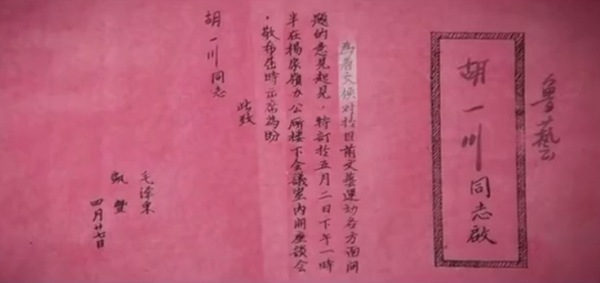 魯藝
胡一川同志啟
為着交換对於目前文藝運动各方面问
題的意見起見，特訂於五月二日下午一時
半在楊家嶺办公厛楼下会議室内開座談会
，敬希屆時出席為盼
此致
胡一川同志
毛澤東
凱豐
四月廿七日